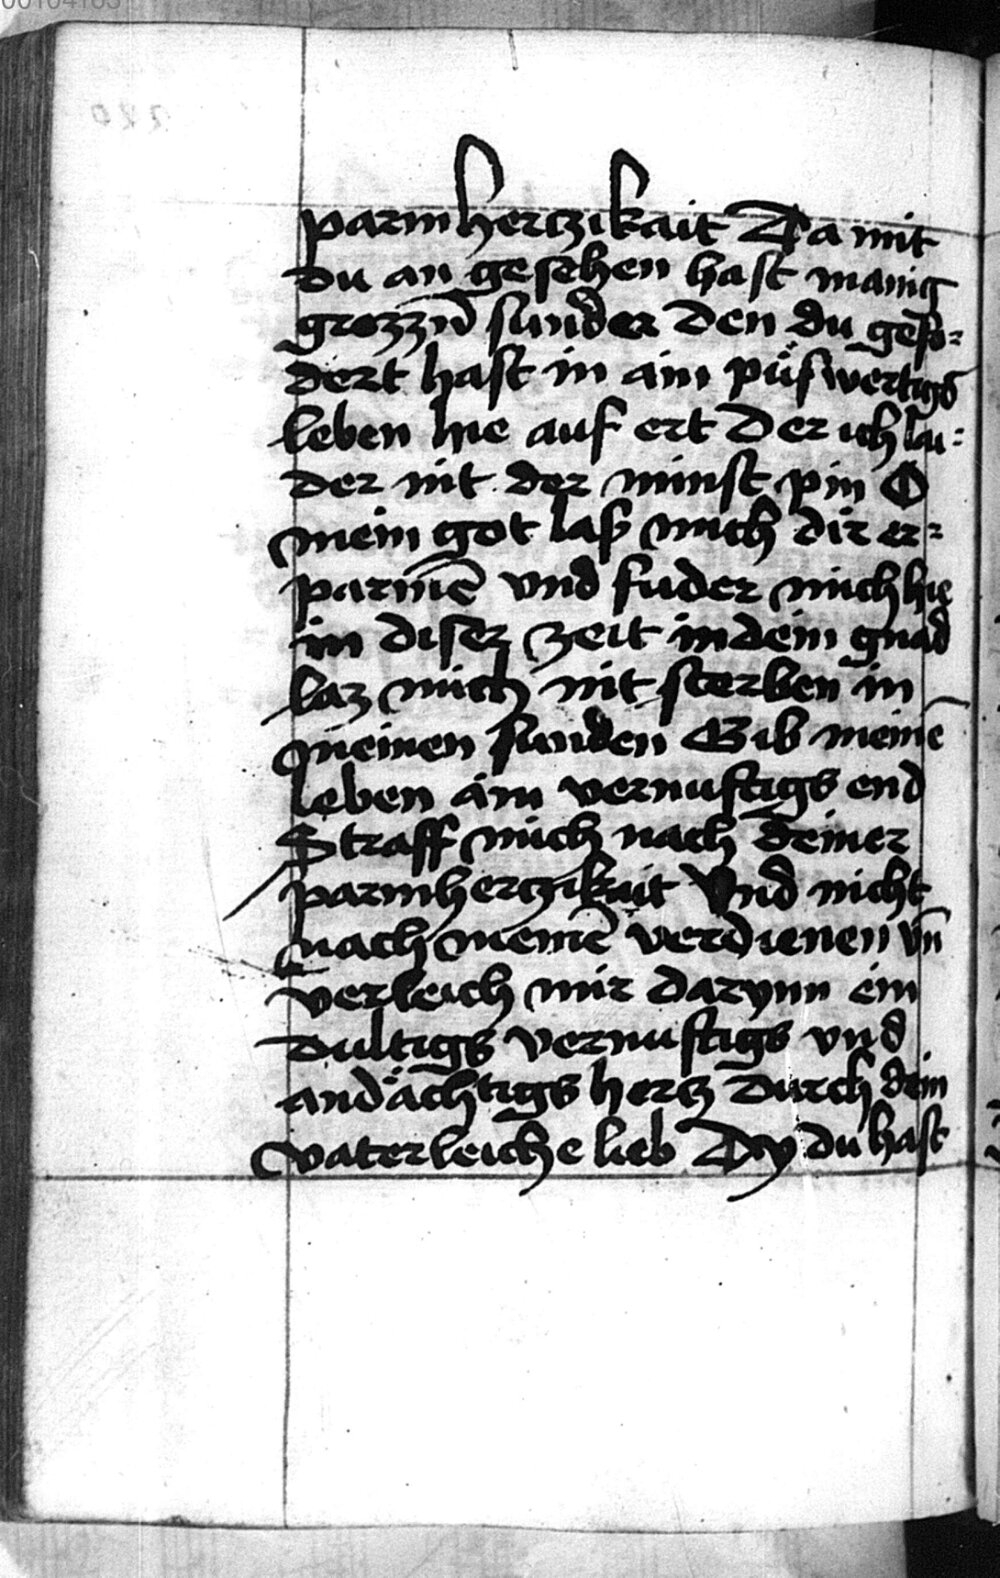 parmhertzikait Da mit
du an gesehen hast manig
grozzn̄ sunder den du gefo⸗
dert hast in ain pu̇ſwertigs
leben hie auf ert Der ich lai⸗
der nit der minst pin O
mein got laß mich dir er⸗
parmē vnd fuder mich hie
in diser zeit in dein gnad
laz mich nit sterben in
meinen sunden Gib meinē
leben ain vernuftigs end
Straff mich nach deiner
parmhertzikait Vnd nicht
nach meinē verdienen vn̄
verleich mir darynn ein
dultigs vernuftigs vnd
andächtigs hertz durch dein
vaterleiche lieb Dy du hast